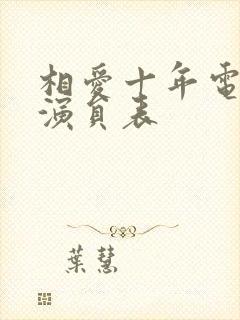 相愛十年電
演員表
葉慧